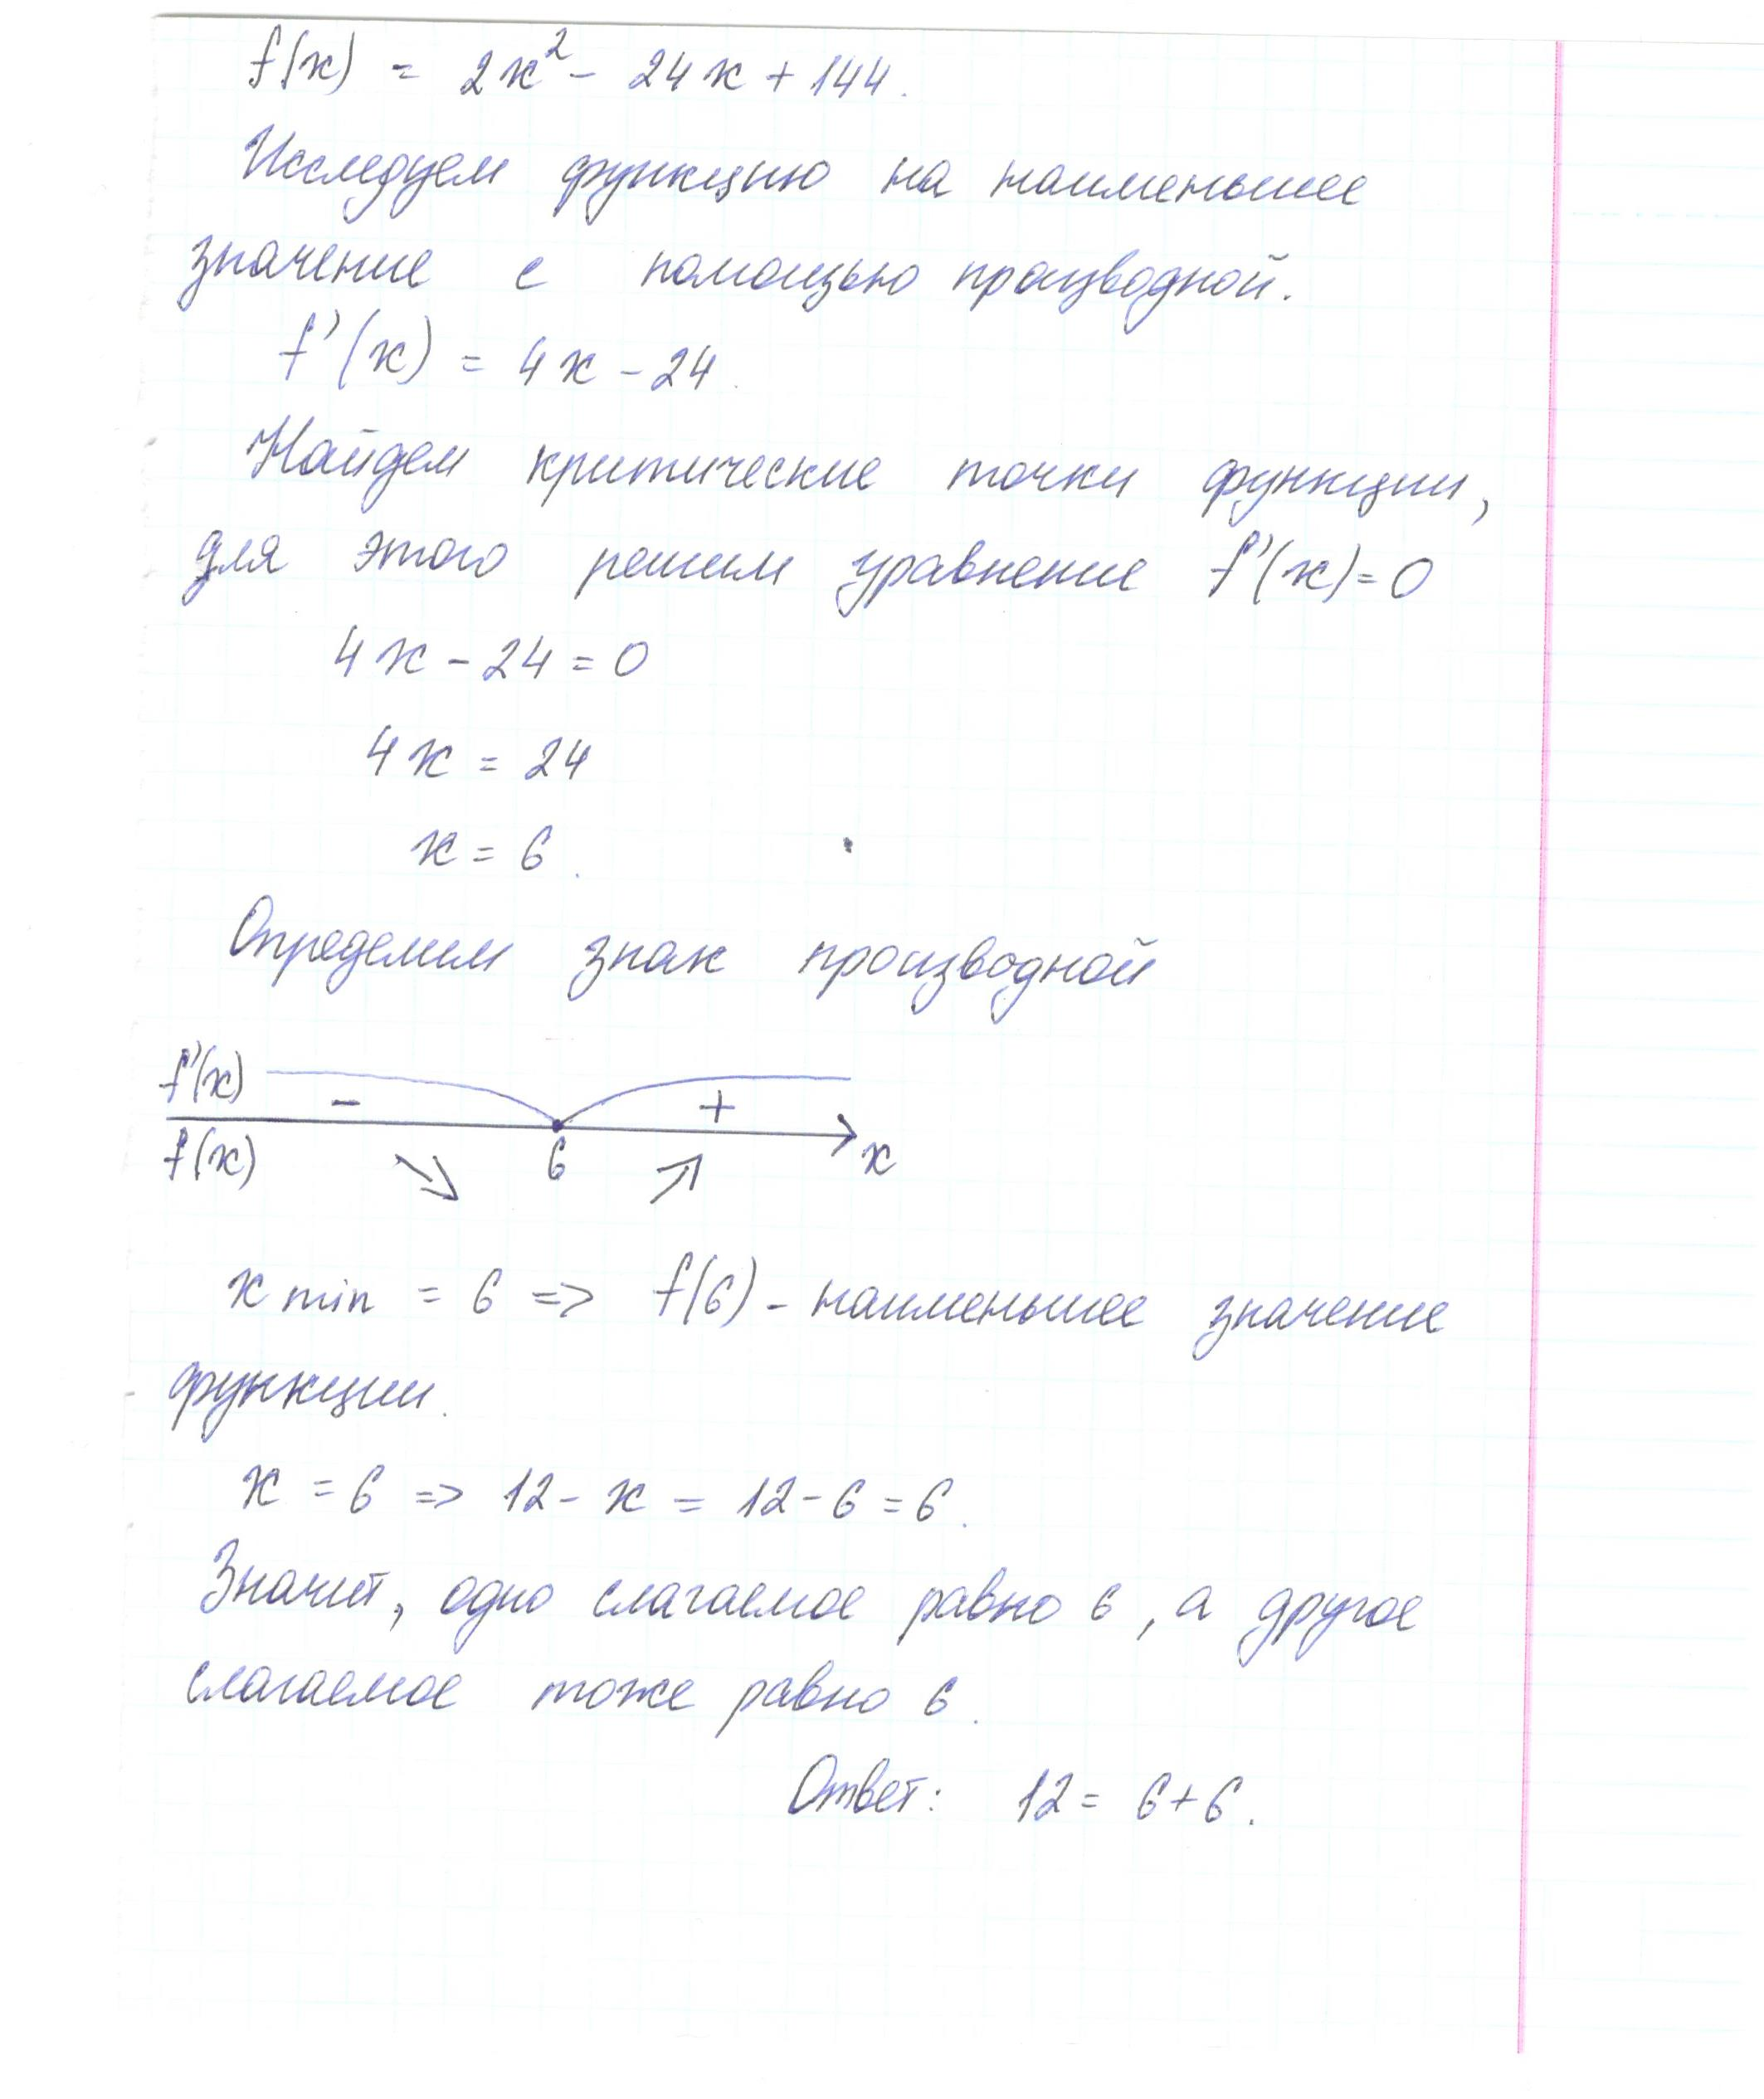 f(x) = 2x² - 24x + 144.
Исследуем функцию на наименьшее
значение с помощью производной.
f'(x) = 4x - 24.
Найдем критические точки функции,
для этого решим уравнение f'(x) = 0
4x - 24 = 0
4x = 24
x = 6.
Определим знак производной
f'(x) - +
f(x) 6 x
x min = 6 => f(6) - наименьшее значение
функции.
x = 6 => 12 - x = 12 - 6 = 6.
Значит, одно слагаемое равно 6, а другое
слагаемое тоже равно 6.
Ответ: 12 = 6 + 6.